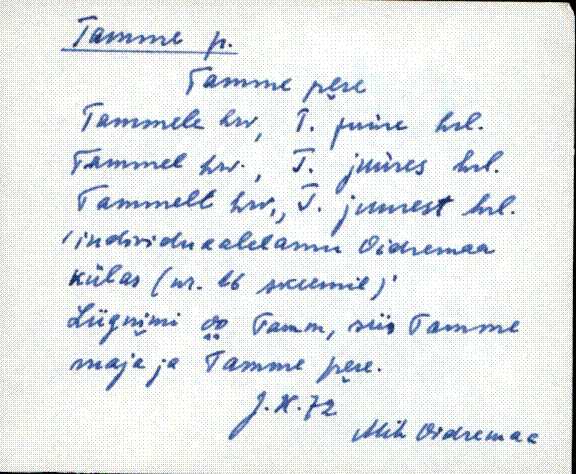 Tamme p.
Tamme pere
Tammele hrv, T. juure hrl.
Tammel hrv., T. juures hrl.
Tammelt hrv., T. juurest hrl.
'individuaalelamu Oidremaa
külas (nr. 16 skeemil)'
Liignimi oo Tamm, siis Tamme
maja ja Tamme pere.
J. X. 72
Mih Oidremaa